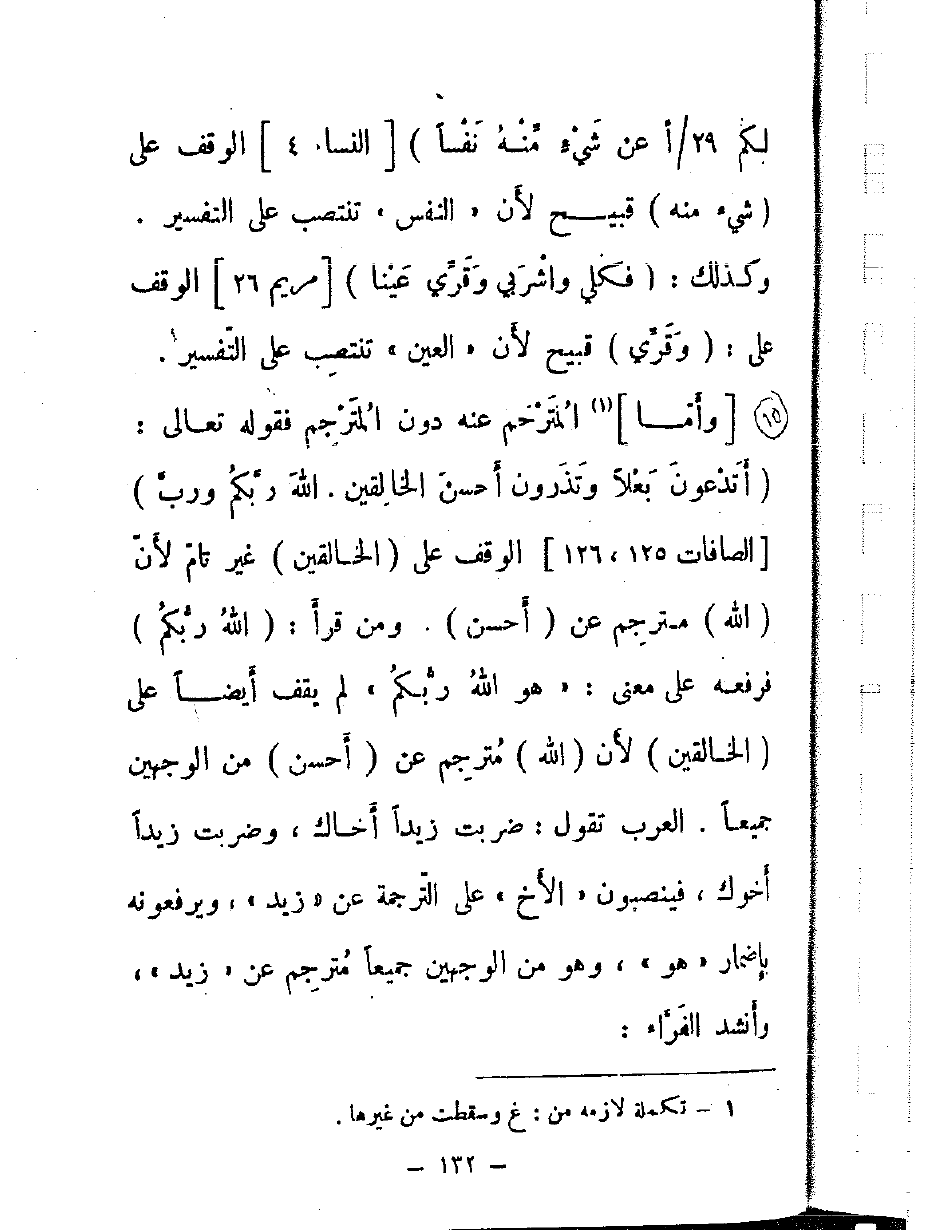 لكم ٢٩/أ عن شَيْءٍ مِّنْـهُ نَفْساً ) [ النساء ٤ ] الوقف على
( شيء منه ) قبيـــح لأن « النفس » تنتصب على التفسير .
وكـذلك : ( فـكلي واشْرَبي وَقَرِّي عَيْنا ) [ مريم ٢٦ ] الوقف
على : ( وَقَرِّي ) قبيح لأن « العين » تنتصِب على التّفسير .
١٥ [ وأمـــا ] (١) المُتَرْجَم عنه دون المُتَرْجِم فقوله تعـالى :
( أَتَدْعونَ بَعْلاً وتَذَرون أَحسنَ الخالِقين . اللهَ ربَّكمُ وربَّ )
[ الصافات ١٢٥ ، ١٢٦ ] الوقف على ( الخـالقين ) غير تامّ لأنّ
( الله ) مـترجِم عن ( أَحسن ) . ومن قرأَ : ( اللهُ ربُّكمُ )
فرفعـه على معنى : « هو اللهُ ربُّـكمُ » لم يقف أَيضـــاً على
( الخـالقين ) لأَن ( الله ) مُترجِم عن ( أَحسن ) من الوجهين
جميعـاً . العرب تقول : ضربت زيداً أَخـاك ، وضربت زيداً
أَخوك ، فينصبون « الأَخ » على التّرجمة عن « زيد » ، ويرفعونه
بإِضمار « هو » ، وهو من الوجهين جميعاً مُترجِم عن « زيد » ،
وأَنشد الفَرَّاء :
١ – تكملة لازمه من : غ وسقطت من غيرها .
– ١٣٢ –